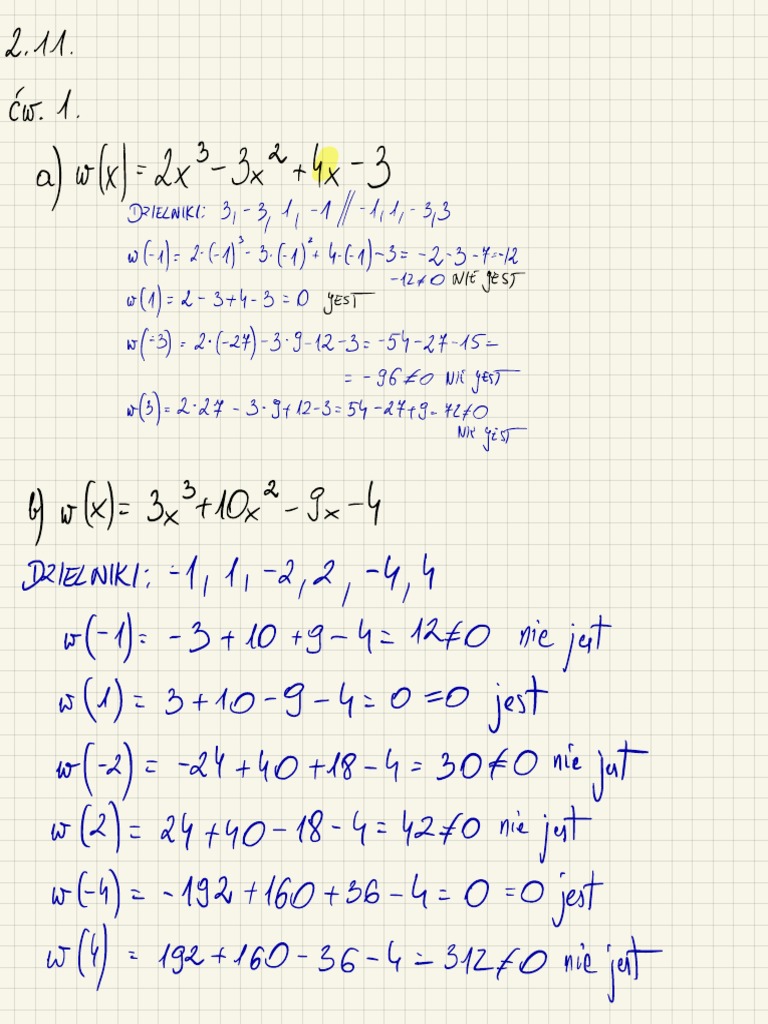 2.11.
ćw. 1.
a) w(x) = 2x³ - 3x² + 4x - 3
DZIELNIKI: 3, -3, 1, -1 // -1, 1, -3, 3
w(-1) = 2·(-1)³ - 3·(-1)² + 4·(-1) - 3 = -2 - 3 - 7 = -12
-12 ≠ 0 NIE JEST
w(1) = 2 - 3 + 4 - 3 = 0 JEST
w(-3) = 2·(-27) - 3·9 - 12 - 3 = -54 - 27 - 15 =
= -96 ≠ 0 NIE JEST
w(3) = 2·27 - 3·9 + 12 - 3 = 54 - 27 + 9 - 72 ≠ 0
NIE JEST
b) w(x) = 3x³ + 10x² - 9x - 4
DZIELNIKI: -1, 1, -2, 2, -4, 4
w(-1) = -3 + 10 + 9 - 4 = 12 ≠ 0 nie jest
w(1) = 3 + 10 - 9 - 4 = 0 = 0 jest
w(-2) = -24 + 40 + 18 - 4 = 30 ≠ 0 nie jest
w(2) = 24 + 40 - 18 - 4 = 42 ≠ 0 nie jest
w(-4) = -192 + 160 + 36 - 4 = 0 = 0 jest
w(4) = 192 + 160 - 36 - 4 = 312 ≠ 0 nie jest